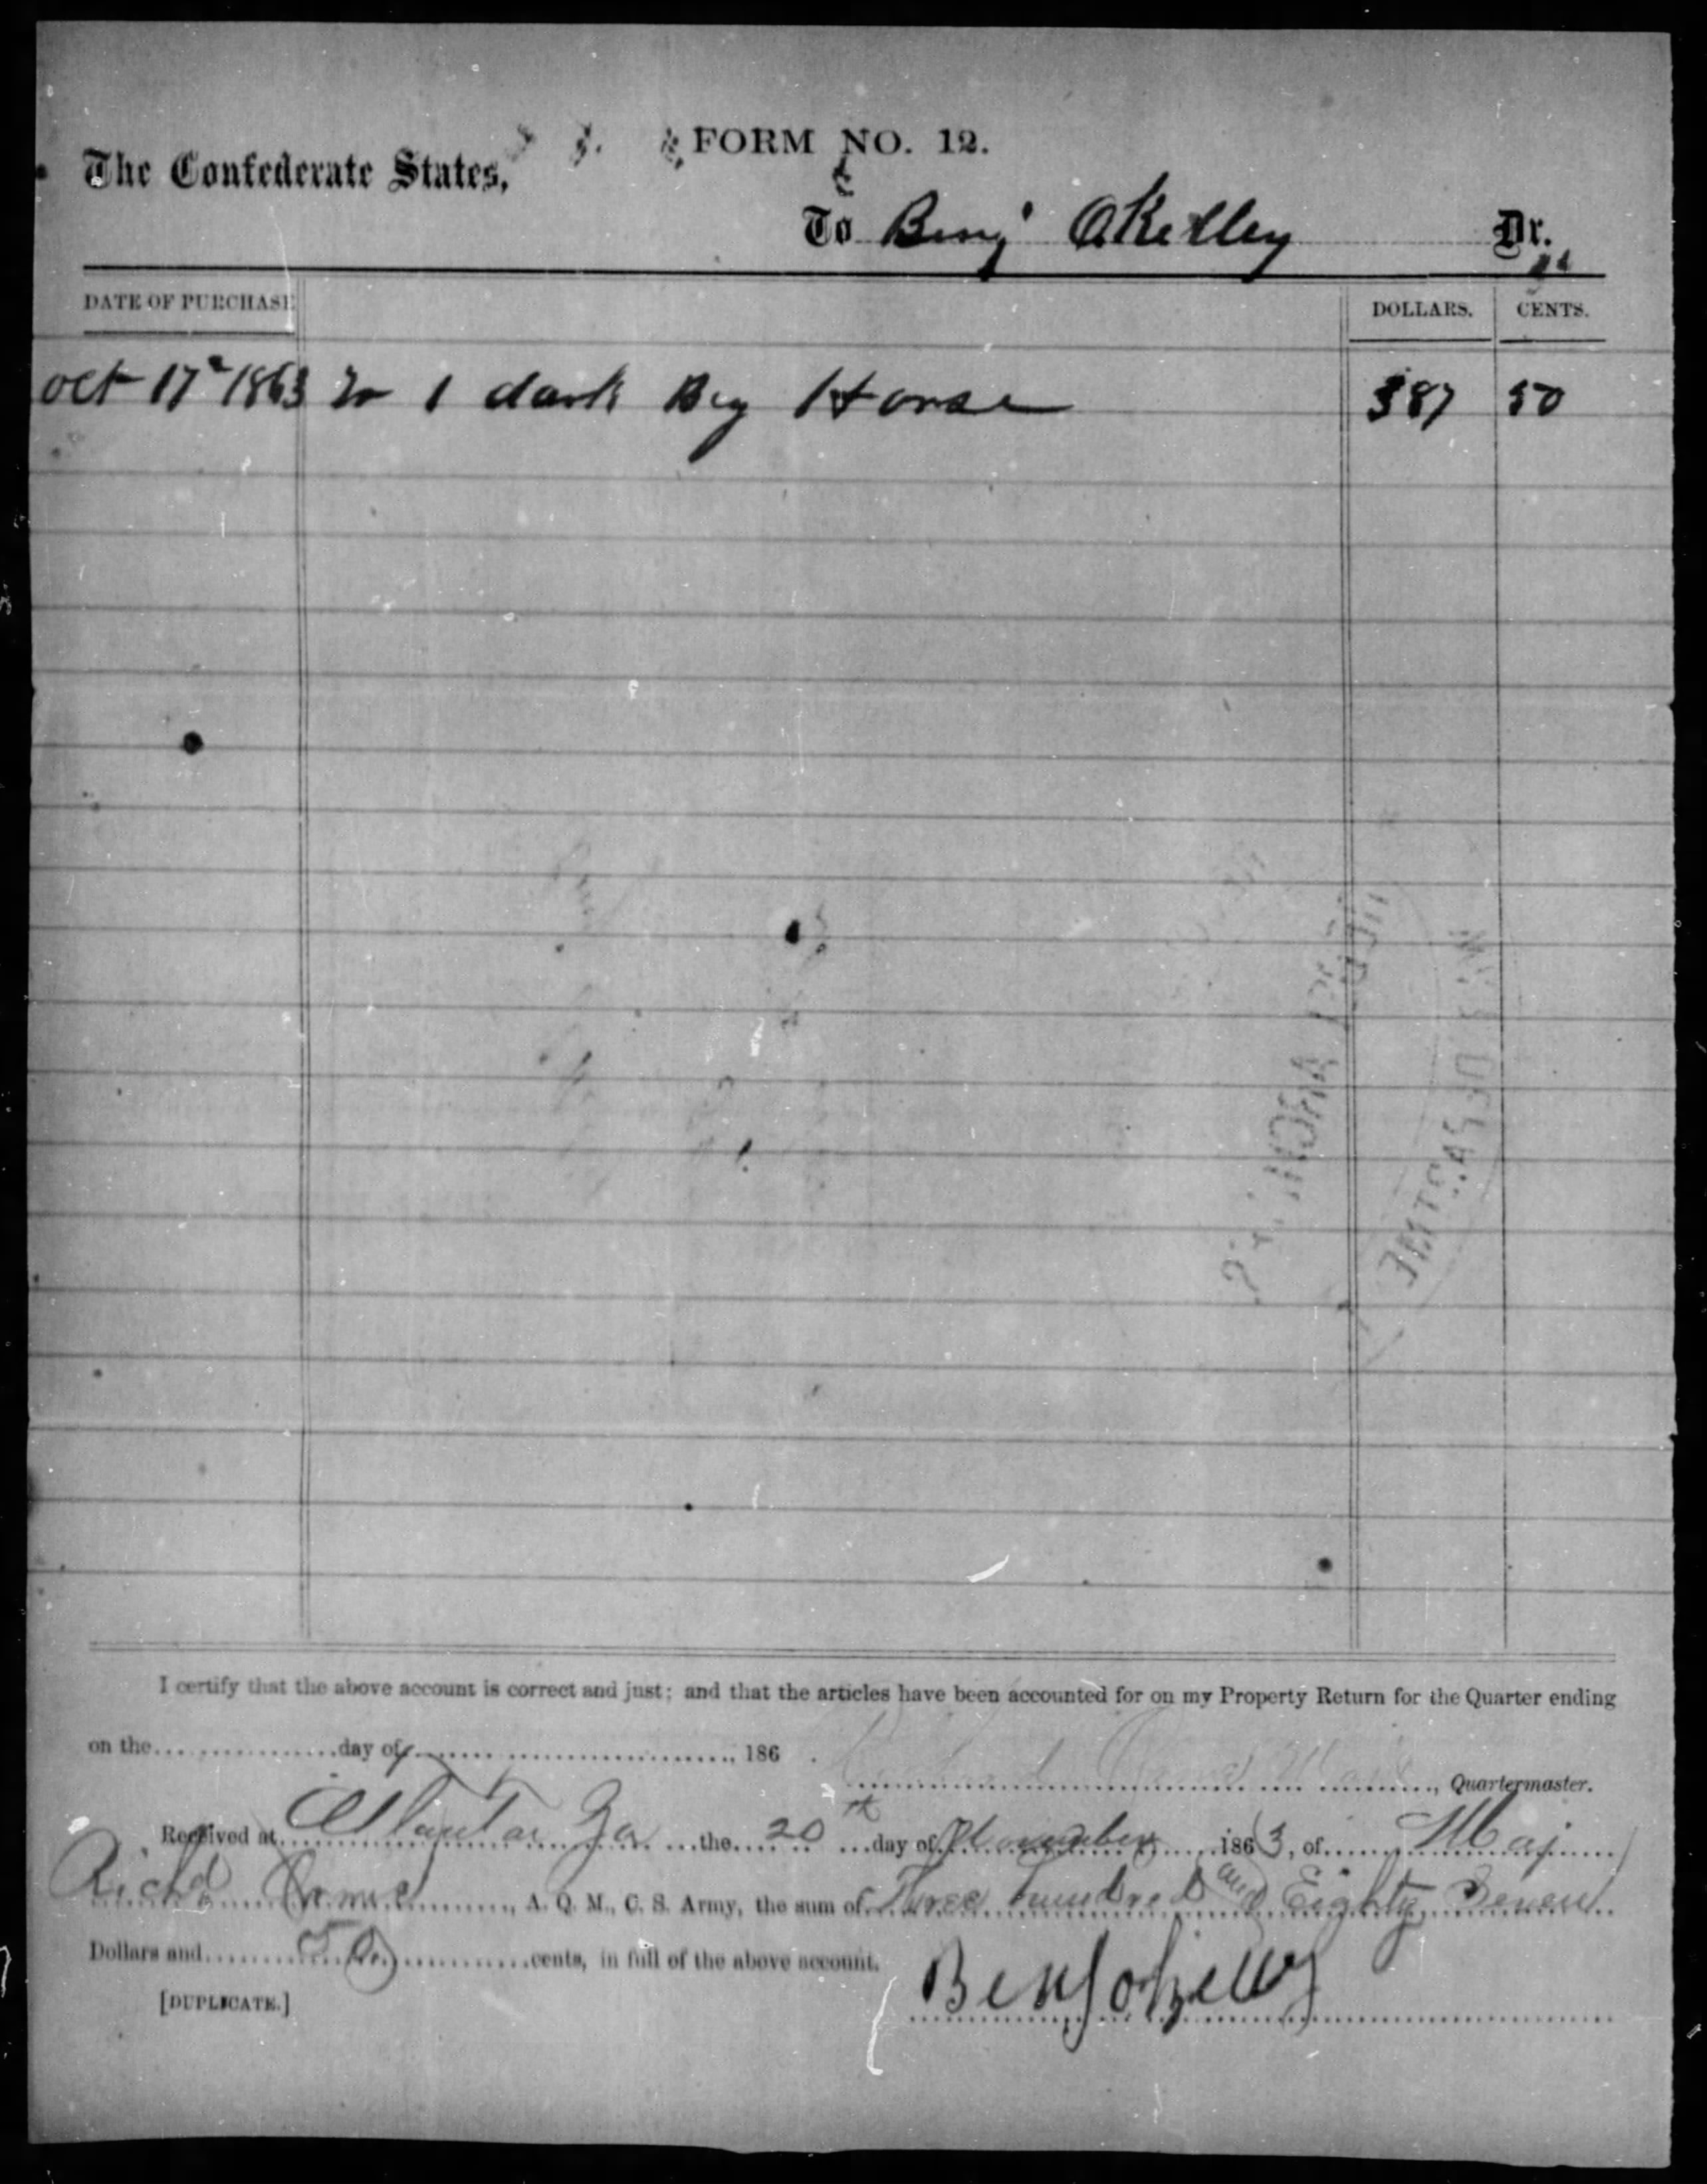 FORM NO. 12.
The Confederate States,
To Benj' OKelley Dr.
DATE OF PURCHASE DOLLARS. CENTS.
Oct 17 1863 To 1 dark Bay Horse 387 50
I certify that the above account is correct and just; and that the articles have been accounted for on my Property Return for the Quarter ending
on the day of 186 .
, Quartermaster.
Received at Atlanta Ga the 20th day of November 1863, of Maj
Richd , A. Q. M., C. S. Army, the sum of Three hundred and Eighty Seven
Dollars and 50 cents, in full of the above account.
[DUPLICATE.]
Benj okelley
WAR DEPARTME